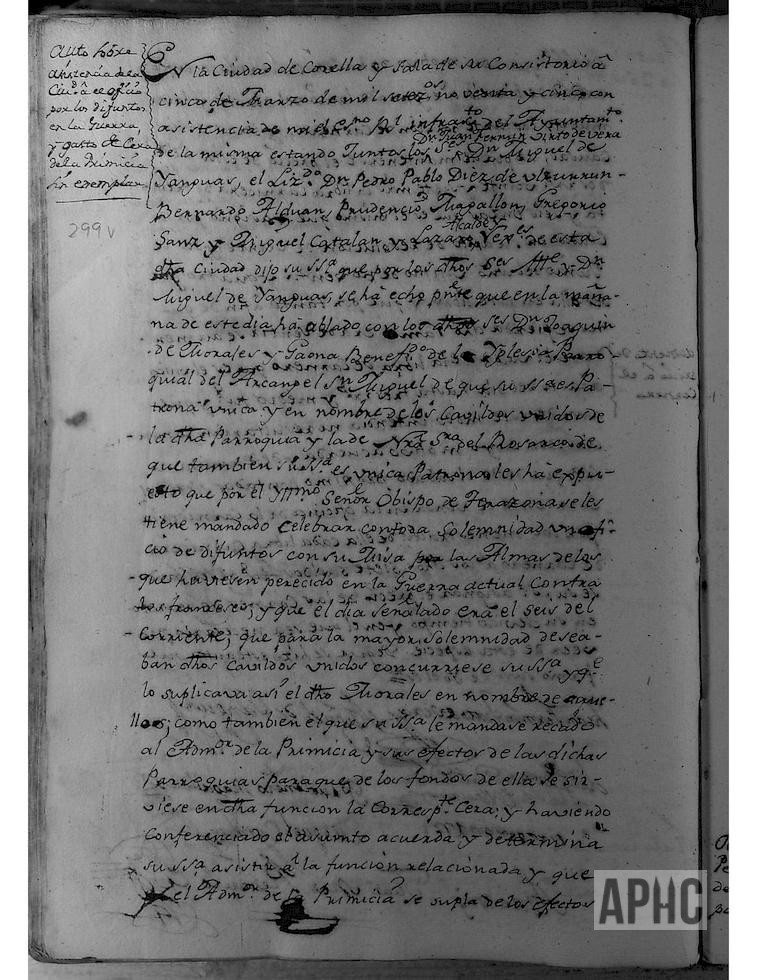 Auto sobre
asistencia de la
Ciud.d a el oficio
por los difuntos
en la Guerra,
y gasto de Cera
de la Primicia
299 v
En la Ciudad de Corella y Sala de su Consistorio a
cinco de Marzo de mil setez.os noventa y cinco con
asistencia de mi el ess.no R.l infrascrito del Ayuntam.to
Dn. Juan Fermin Sixto de Vera
de la misma estando Juntos los S.es Dn. Miguel de
Yanguas, el Liz.do Dn. Pedro Pablo Diez de Ulzurrun
Bernardo Alduan, Prudencio Gregorio
Alcalde y
Sanz y Miguel Catalan y Lazaro de esta
dha Ciudad dijo su ssa. que por los dhos S.es Alle. y Dn.
Miguel de Yanguas, se ha echo pnte que en la maña-
na de este dia há ablado con los dhos ses. Dn. Joaquin
de Morales y Gaona Benefi.do de la Yglesia Parro
quial del Arcangel Sn. Miguel de que su ssa es Pa-
trona unica y en nombre de los Cavildos unidos de
la dha Parroquia y la de Nra Sra. del Rosario de
que tambien su ssa es unica Patrona les há expu-
esto que por el Yllmo Señor Obispo de Tarazona se les
tiene mandado celebrar con toda solemnidad un ofi-
cio de difuntos con su Misa por las Almas de los
que huviesen perecido en la Guerra actual Contra
los franceses; y que el dia señalado era el seis del
Corriente; que para la mayor solemnidad desea-
ban dhos Cavildos unidos concurriese su ssa. y q.e
lo suplicava asi el dho Morales en nombre de aque-
llos; como tambien el que su ssa. le mandase recado
al Adm.or de la Primicia y sus efectos de las dichas
Parroquias para que de los fondos de ella se sir-
viese en dha funcion la Corresp.te Cera; y haviendo
Conferenciado el asumto acuerda y determina
su ssa. asistir a la funcion relacionada y que
el Adm.or de la Primicia se supla de los efectos
APHC